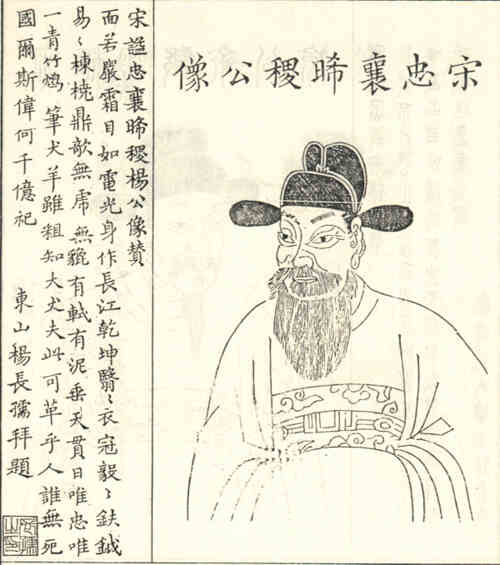 宋忠襄晞稷公像
宋諡忠襄晞稷楊公像賛
面若嚴霜目如電光身作長江乾坤翳〻衣冠毅〻鈇鉞
易〻棟橈鼎欹無虎無貔有軾有泥垂天貫日唯忠唯
一青竹筆犬羊雖粗知大丈夫此可革乎人誰無死
國爾斯偉何千億祀
東山楊長孺拜題